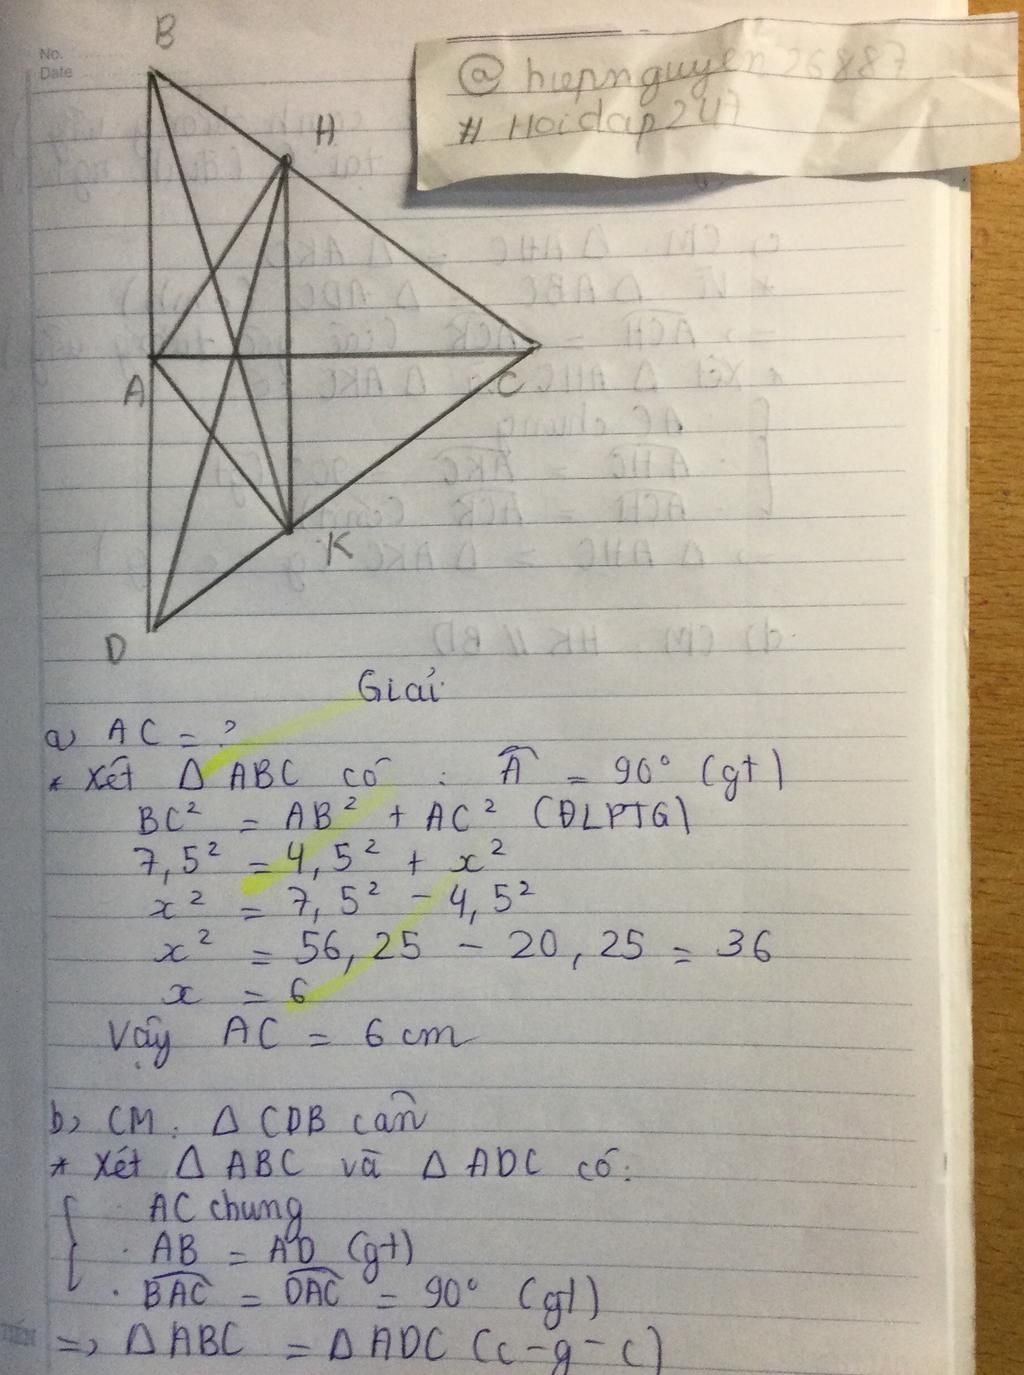 No.
Date
@ hiepnguyen26887
# Hoidap247
B
H
A
C
K
D
Giải
a, AC = ?
* Xét Δ ABC có : A = 90° (gt)
BC² = AB² + AC² (ĐLPTG)
7,5² = 4,5² + x²
x² = 7,5² - 4,5²
x² = 56,25 - 20,25 = 36
x = 6
Vậy AC = 6 cm
b, CM : Δ CDB cân
* Xét Δ ABC và Δ ADC có :
· AC chung
· AB = AD (gt)
· BAC = DAC = 90° (gt)
=> Δ ABC = Δ ADC (c-g-c)